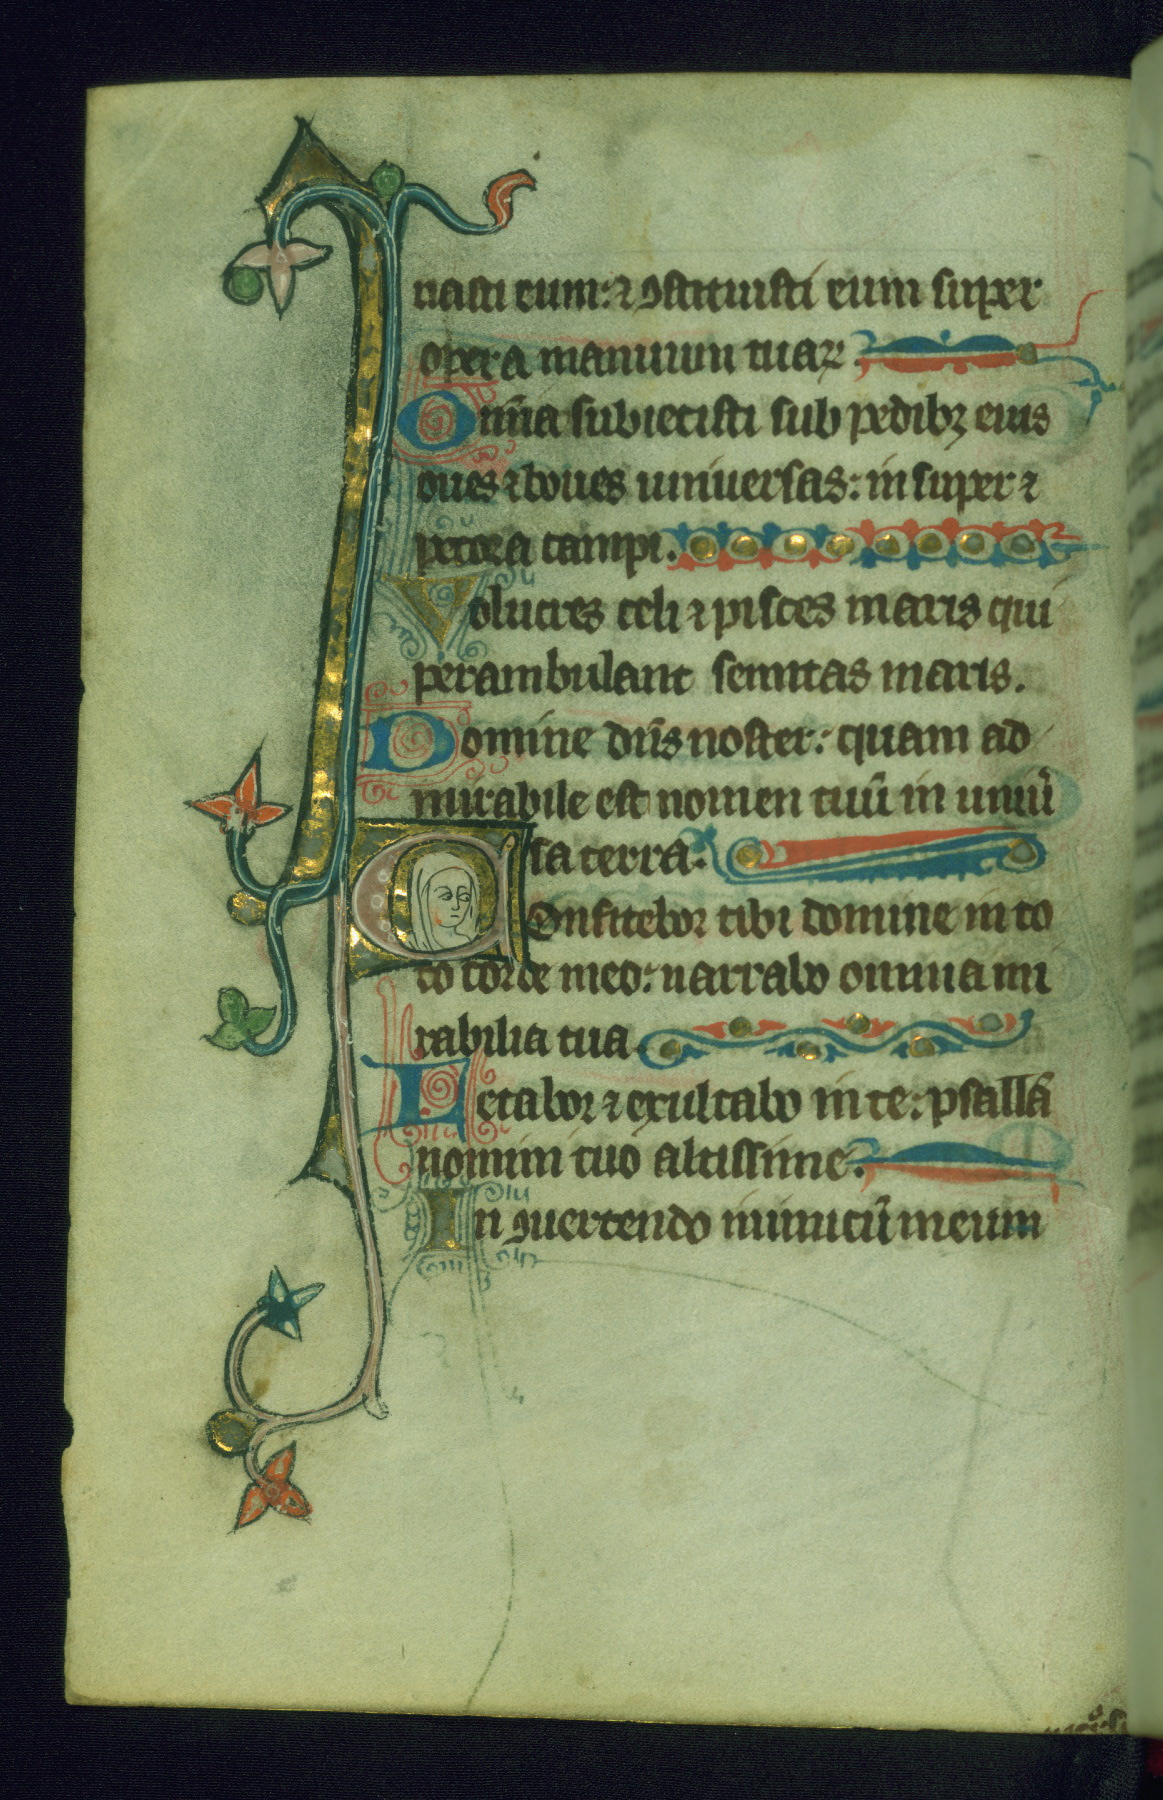 nasti eum: ⁊ ꝯstituisti eum super
opera manuum tuaꝝ.
Om̄ia subiecisti sub pedibꝫ eius
oues ⁊ boues uniuersas: insuper ⁊
pecora campi.
Volucres celi ⁊ pisces maris qui
perambulant semitas maris.
Domine dn̄s noster: quam ad
mirabile est nomen tuū in uniū
sa terra.
Confitebor tibi domine in to
to corde meo: narrabo omnia mi
rabilia tua.
Letabor ⁊ exultabo in te: psallā
nomini tuo altissime.
In ꝯuertendo inimicū meum